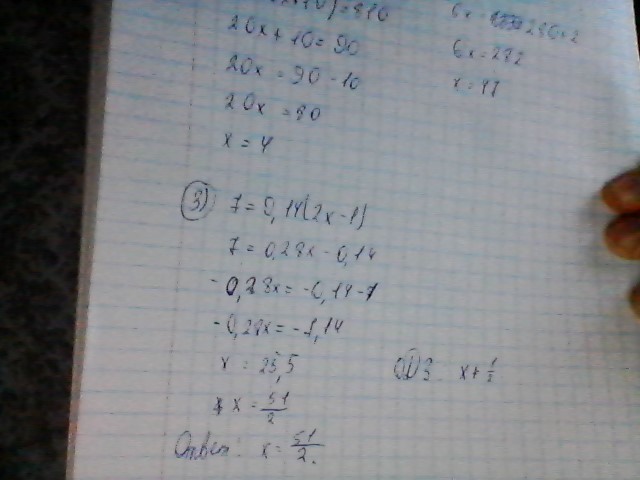 20x+10=90
20x=90-10
20x=80
x=4
6x=282
x=47
3) 7=0,14(2x-1)
7=0,28x-0,14
-0,28x=-0,14-7
-0,28x=-7,14
x=25,5
x=51/2
Ответ: x=51/2.
ОДЗ x≠1/2